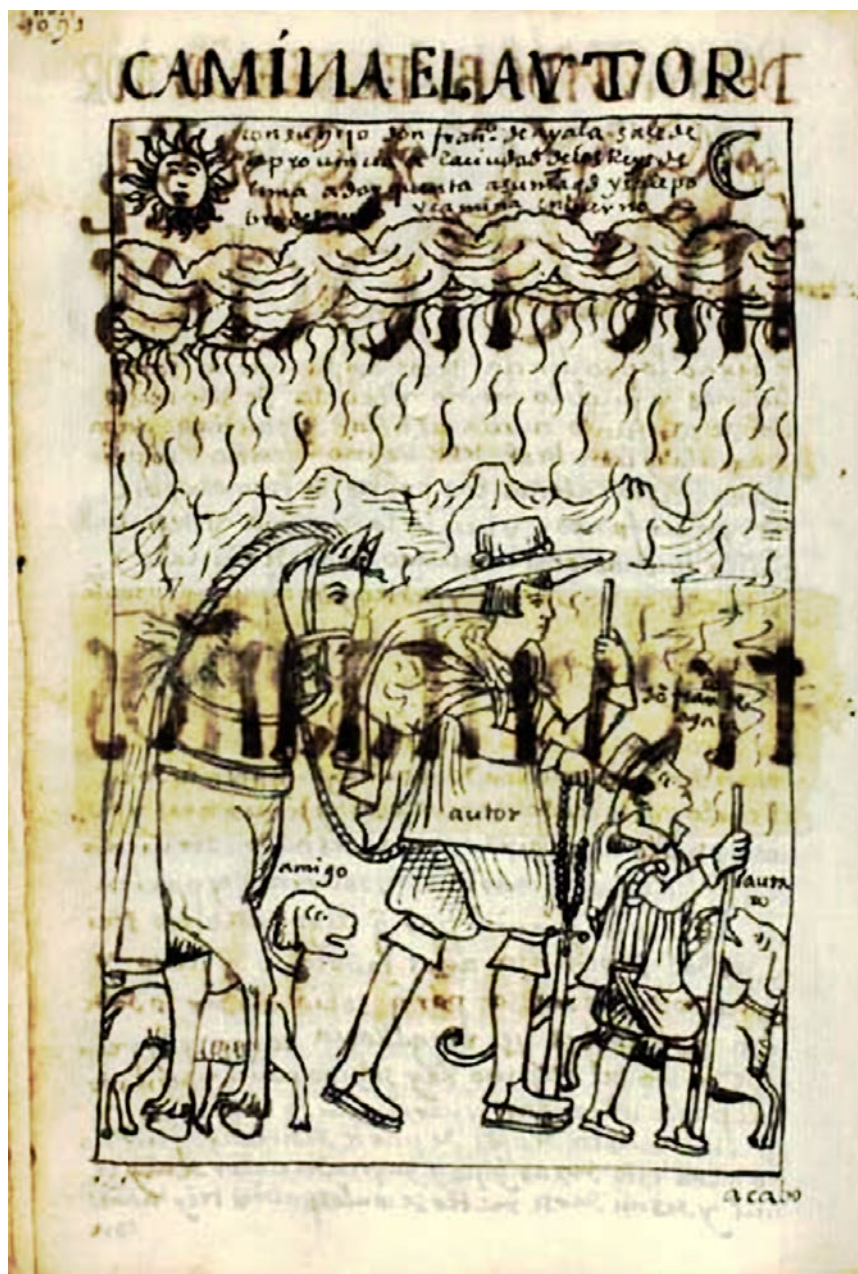 CAMÍNA EL AVTOR
con su hijo don franco. de ayala sale de
la prouincia a la ciudad de los Reys de
lima a dar quenta a su mag.d y sale po
bre y camina en ynbierno
don fran.co de
ayala
autor
amigo
lauta
ro
acabo